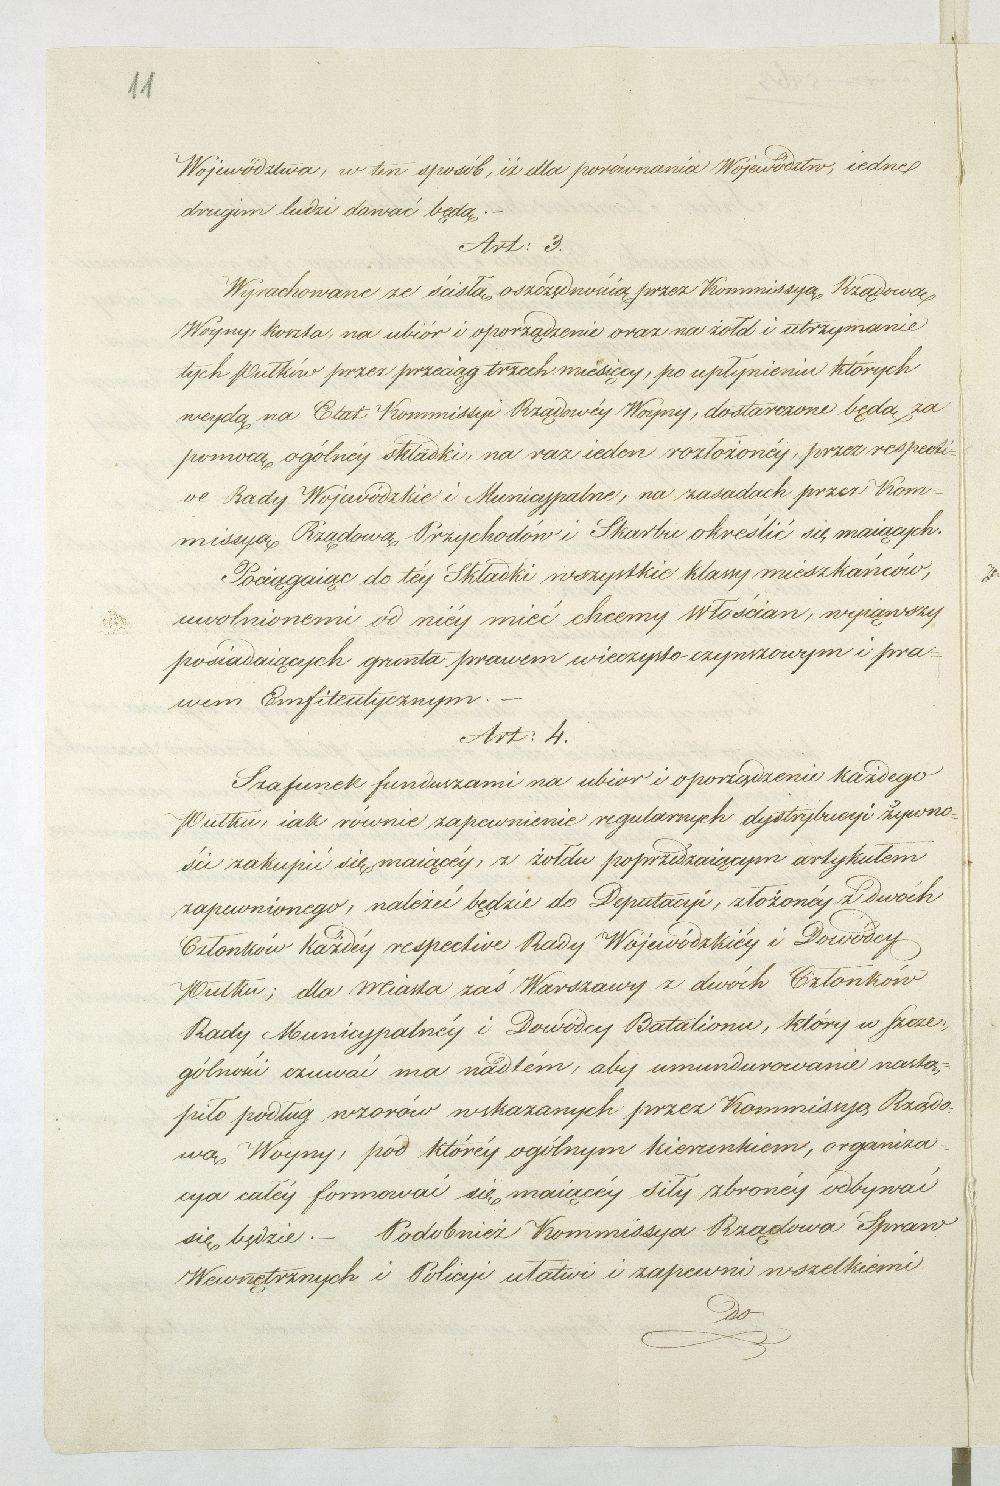 11
Województwa, w ten sposób, iż dla porównania Województw, iedne
drugim ludzi dawać będą. –
Art: 3.
Wyrachowane ze ścisłą oszczędnością przez Kommissyą Rządową
Woyny, koszta, na ubiór i oporządzenie oraz na żołd i utrzymanie
tych Pułków przez przeciąg trzech miesięcy, po upłynieniu których
weydą na Etat Kommissyi Rządowéy Woyny, dostarczone będą za
pomocą ogólnéy składki, na raz ieden rozłożonéy, przez respecti-
ve Rady Wojewódzkie i Municypalne, na zasadach przez Kom-
missyą Rządową Przychodów i Skarbu określić się maiących.
Pociągaiąc do téy Składki wszystkie klassy mieszkańców,
uwolnionemi od niéy mieć chcemy Włościan, wyiąwszy
posiadaiących grunta prawem wieczysto czynszowym i pra-
wem Emfiteutycznym. –
Art: 4.
Szafunek funduszami na ubior i oporządzenie każdego
Pułku, iak równie zapewnienie regularnych dystrybucyi żywno-
ści zakupić się maiącéy, z żołdu poprzedzaiącym artykułem
zapewnionego, należeć będzie do Deputacyi, złożonéy z dwóch
Członków każdéy respective Rady Wojewódzkiéy i Dowódcy
Pułku; dla Miasta zaś Warszawy z dwóch Członków
Rady Municypalnéy i Dowódcy Batalionu, który w szcze-
gólności czuwać ma nadtém, aby umundurowanie nastą-
piło podług wzorów wskazanych przez Kommissyą Rządo-
wą Woyny, pod któréy ogólnym kierunkiem, organiza-
cya całéy formować się maiącéy siły zbronéy odbywać
się będzie. – Podobnież Kommissya Rządowa Spraw
Wewnętrznych i Policyi ułatwi i zapewni wszelkiemi
do